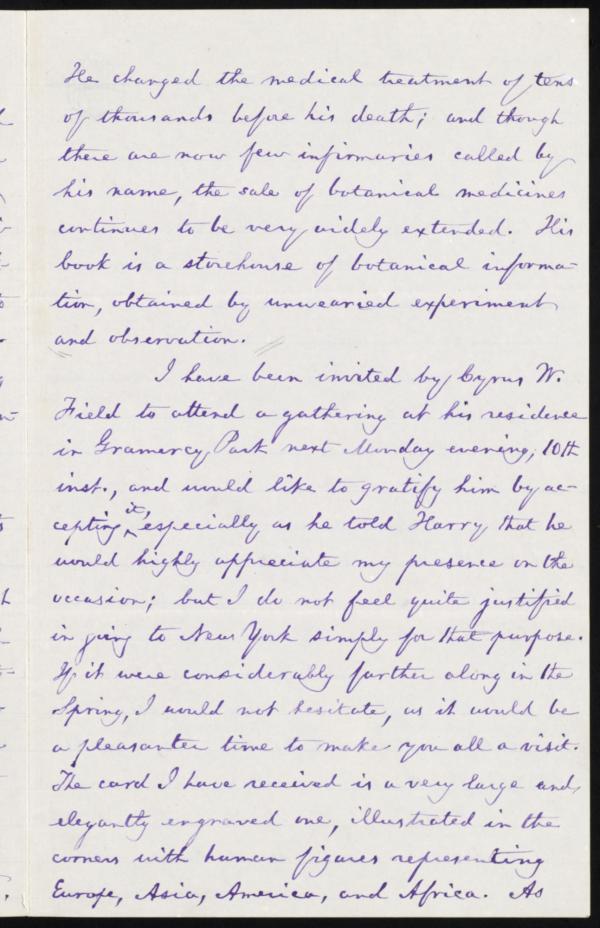 He changed the medical treatment of tens
of thousands before his death; and though
there are now few infirmaries called by
his name, the sale of botanical medicines
continues to be very widely extended. His
book is a storehouse of botanical informa-
tion, obtained by unwearied experiment
and observation.
I have been invited by Cyrus W.
Field to attend a gathering at his residence
in Gramercy Park next Monday evening, 10th
inst., and would like to gratify him by ac-
cepting it, especially as he told Harry that he
would highly appreciate my presence on the
occasion; but I do not feel quite justified
in going to New York simply for that purpose.
If it were considerably further along in the
Spring, I would not hesitate, as it would be
a pleasanter time to make you all a visit.
The card I have received is a very large and
elegantly engraved one, illustrated in the
corners with human figures representing
Europe, Asia, America, and Africa. As